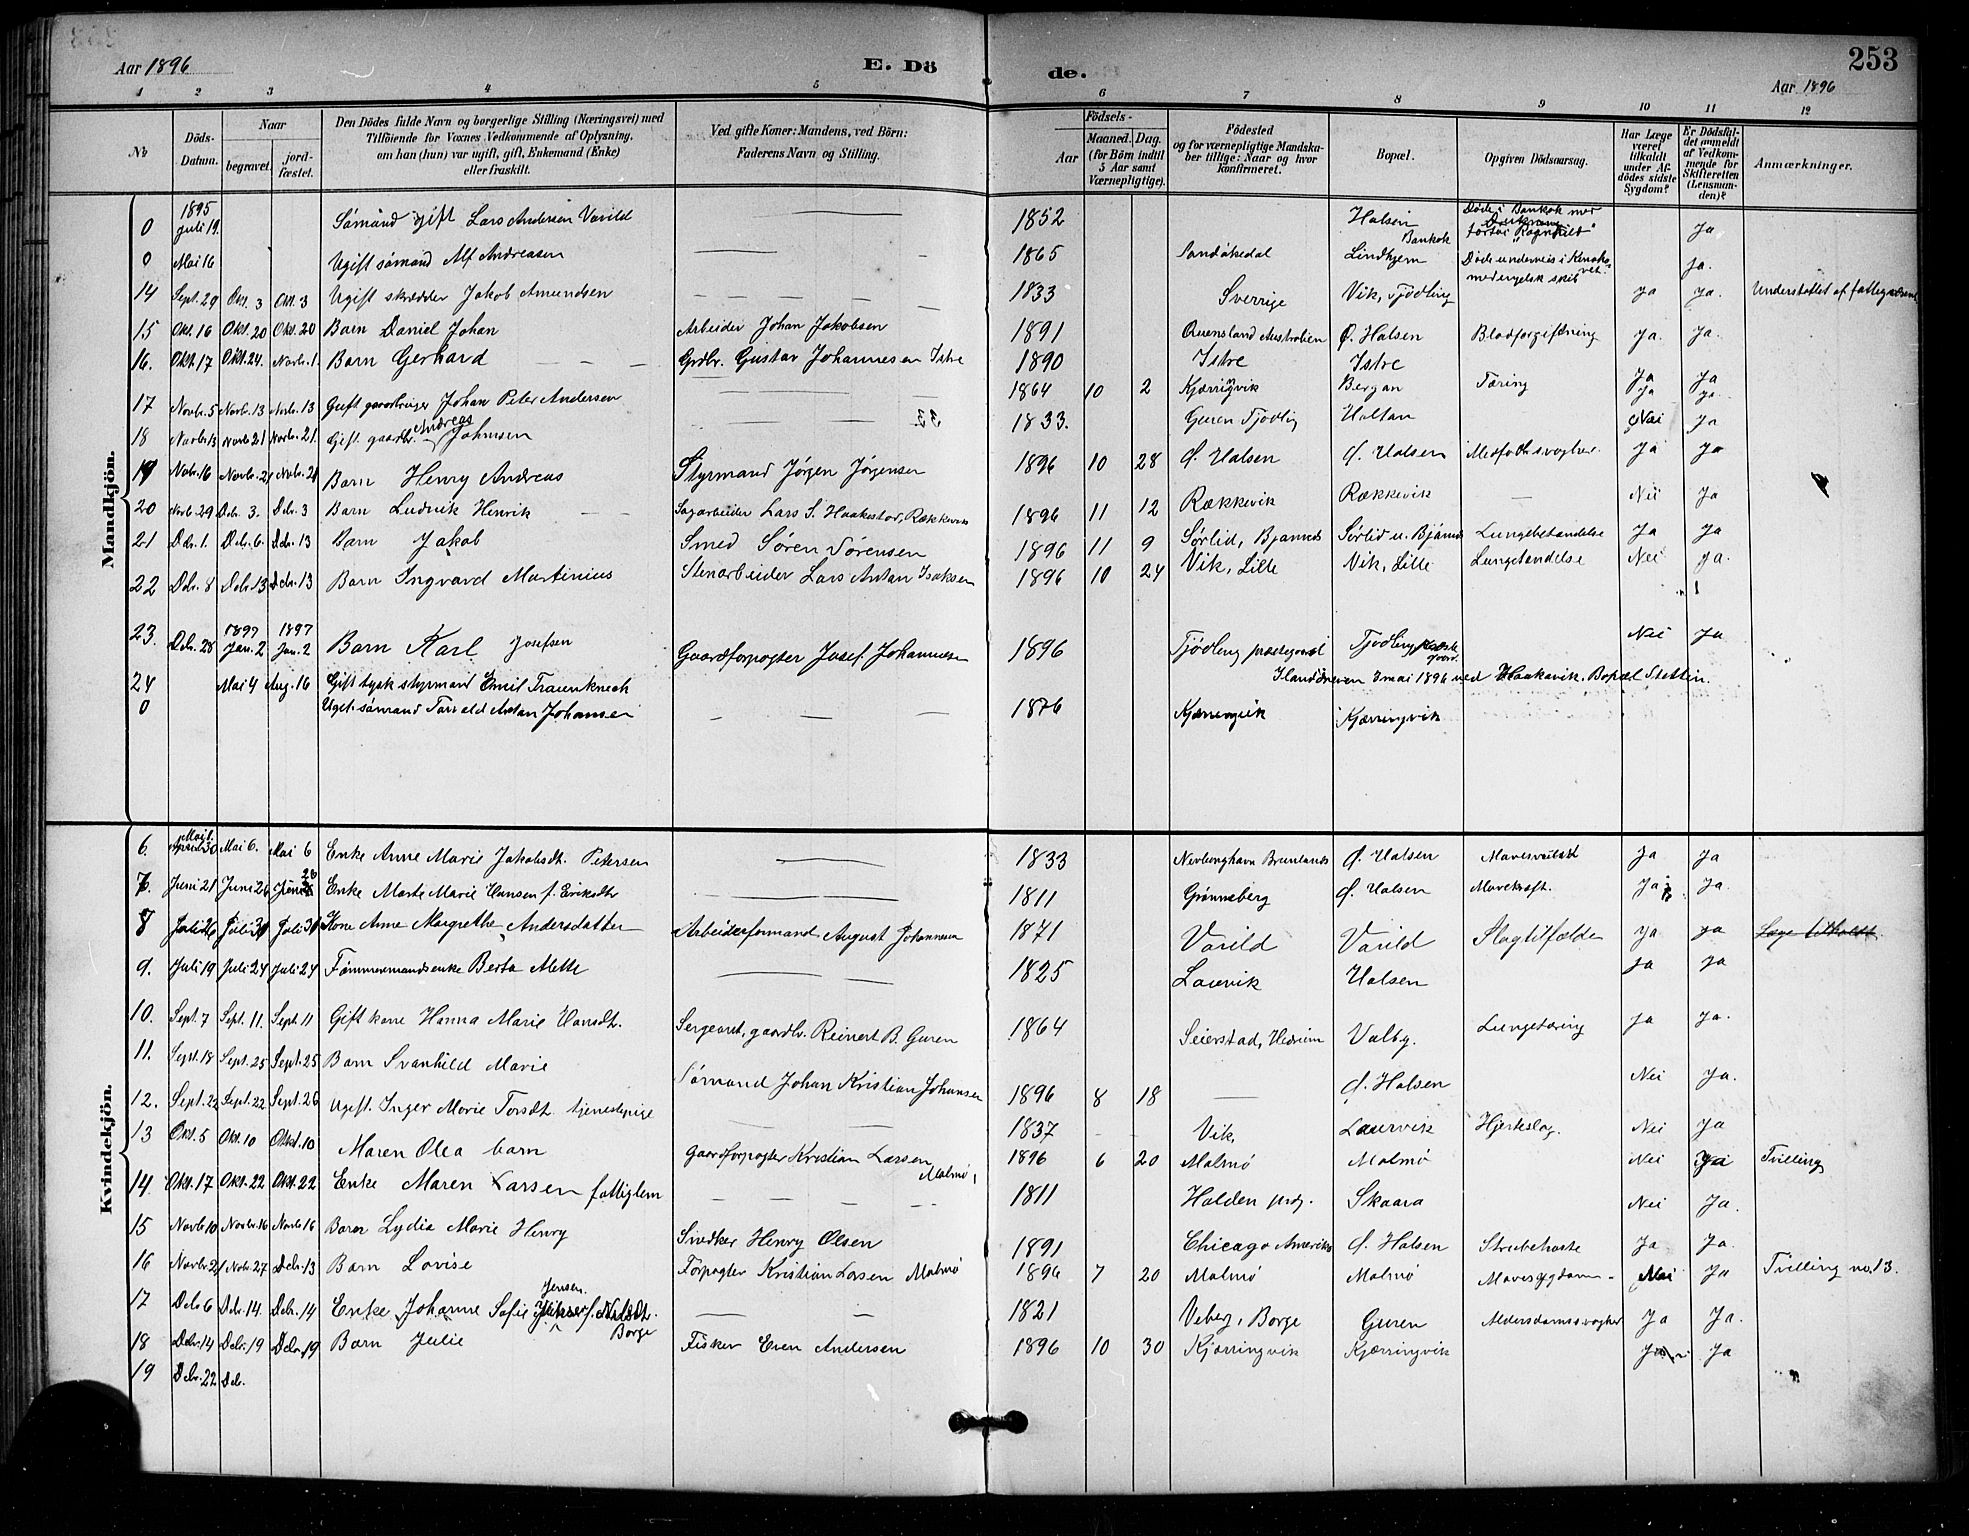 Aar 1896
E. Dö
de.
253
Aar 1896
1 2 3 4 5 6 7 8 9 10 11 12
No
Döds-Datum.
Naar
begravet.
jordfæstet.
Den Dödes fulde Navn og borgerlige Stilling (Næringsvei) med
Tilföiende for Voxnes Vedkommende af Oplysning,
om han (hun) var ugift, gift, Enkemand (Enke)
eller fraskilt.
Ved gifte Koner: Mandens, ved Börn:
Faderens Navn og Stilling.
Födsels-
Aar
Maaned. Dag.
(for Börn indtil
5 Aar samt
Værnepligtige).
Födested
og for værnepligtige Mandskaber
tillige: Naar og hvor
konfirmeret.
Bopæl.
Opgiven Dödsaarsag.
Har Læge
været
tilkaldt
under Afdödes
sidste
Sygdom?
Er Dödsfaldet
anmeldt
af Vedkommende
for
Skifteretten
(Lensmanden)?
Anmærkninger.
Mandkjön.
0 1895 Juli 19. Sømand gift Lars Andersen Varild 1852 Halsen Bankok Døde i Bankok med "Ragnhild" Ja
0 Mai 16 Ugift sømand Alf Andreasen 1865 Sandøkedal Lindhjem Døde underveis i med engelsk skib Ja.
14 Sept. 29 Okt. 3 Okt. 3 Ugift skrædder Jakob Amundsen 1833 Sverrige Vik, Tjødling Ja Ja. Understøttet af fattigvæsenet
15 Okt. 16 Okt. 20 Okt. 20 Barn Daniel Johan Arbeider Johan Jakobsen 1891 Queensland Australien Ø. Halsen Blodforgiftning Ja. Ja.
16. Okt. 17 Okt. 24. Novbr. 1. Barn Gerhard Grdbr. Gustav Johannesen Istre 1890 Istre Istre Ja Ja
17 Novbr. 5 Novbr. 13 Novbr. 13 Gift gaardbruger Johan Peter Andersen 1864 10 2 Kjærringvik Bergan Tæring Ja Ja
18 Novbr. 13 Novbr. 21 Novbr. 21. Gift gaardbr. Andreas Johnsen 1833. Guren Tjødling Holtan Nei Ja
19 Nobr. 16 Novbr. 21 Novbr. 21 Barn Henry Andreas Styrmand Jørgen Jørgensen 1896 10 28 Ø. Halsen Ø. Halsen Medfødt svaghed. Ja Ja
20 Novb. 29 Dcbr. 3. Dcbr. 3 Barn Ludvik Henrik Sagarbeider Lars S. Haakestad, Rækkevik 1896 11 12 Rækkevik Rækkevik Nei Ja
21 Dcbr. 1. Dcbr. 6. Dcbr. 13 Barn Jakob Smed Søren Sørensen 1896 11 9 Sørlid, Bjønnes Sørlid u. Bjønnes Lungebetændelse Ja Ja
22 Dcbr. 8 Dcbr. 13 Dcbr. 13 Barn Ingvard Martinius Stenarbeider Lars Anton Isaksen 1896 10 24 Vik, Lille Vik, Lille Lungetændelse Nei Ja.
23. Dcbr. 28 1897 Jan. 2 1897 Jan. 2 Barn Karl Josefsen Gaardforpagter Josef Johannesen 1896 Tjødling præstegaard Tjødling præstegaard. Nei Ja
24 Mai 4 Aug. 16 Gift tysk styrmand Emil Trauenknech Ilanddreven 3 mai 1896 ved Haakavik. Bopæl Stettin.
0 Ugift sømand Torvald Anton Johansen 1876 Kjærringvik Kjærringvik
Kvindekjön.
6. Mai 1. April 30 Mai 6. Mai 6 Enke Anne Marie Jakobsdt. Petersen 1833 Nevlunghavn Brunlanes Ø. Halsen Ja Ja
7. Juni 21 Juni 26 Juni 26 Enke Marte Marie Hansen f. Eriksdtr 1811 Grønneberg Ø. Halsen Mavekræft. Ja Ja.
8 Juli 26 Juli 31 Juli 31 Kone Anne Margrethe Andersdatter Arbeiderformand August Johannesen 1871 Varild Varild Slagtilfælde Ja Ja
9. Juli 19 Juli 24 Juli 24 Tømmermandsenke Berta Mette 1825 Laurvik Halsen Ja Ja
10. Sept. 7 Sept. 11. Sept. 11 Gift kone Hanna Marie Hansdt. Sergeant, gaardbr. Reinert B. Guren 1864 Seierstad, Hedrum Valby. Lungetæring Ja Ja.
11. Sept. 18 Sept. 25 Sept. 25 Barn Svanhild Marie Sømand Johan Kristian Johansen 1896 8 18 Ø. Halsen Nei Ja.
12. Sept. 22 Sept. 22 Sept. 26 Ugift. Inger Marie Torsdt. tjenestepige 1837 Vik, Laurvik Hjerteslag. Nei Ja
13 Okt. 5 Okt. 10 Okt. 10 Maren Olea barn Gaardforpagter Kristian Larsen Malmø, 1896 6 20 Malmø Malmø Nei Ja Tvilling
14. Okt. 17 Okt. 22 Okt. 22 Enke Maren Larsen fattiglem 1811 Holden prgj. Skaara Nei Ja.
15 Novbr. 10 Novbr. 16 Novbr. 16 Barn Lydia Marie Henry Snedker Henry Olsen 1891 Chicago Amerika Ø. Halsen Strubehoste Ja Ja.
16 Novbr. 21 Nobr. 27 Dcbr. 13 Barn Lovise Forpagter Kristian Larsen Malmø 1896 7 20 Malmø Malmø Mavesygdom Nei Ja Tvilling no. 13.
17 Dcbr 6 Dcbr. 14. Dcbr. 14 Enke Johanne Sofie Jensen f. Nilsdt. Borge 1821 Veberg, Borge Guren Aldersdomssvaghed Ja Ja.
18 Dcbr. 14 Dcbr. 19 Dcbr. 19 Barn Julie Fisker Even Andersen 1896 10 30 Kjærringvik Kjærringvik Ja
19 Dcbr. 22 Dcb.